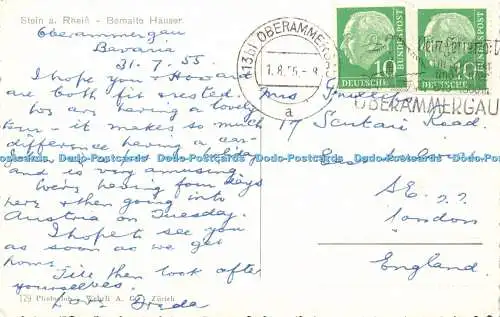 Stein a. Rhein - Bemalte Häuser
Oberammergau
Bavaria
31.7.55
I hope you & Howard
are both fit & rested.
We are having a lovely
time - it makes so much
difference having a car.
and is very amusing.
We're having four days
here & then going into
Austria on Tuesday.
I hope to see you
as soon as we get
home.
Till then look after
yourselves.
Love Freda
179 Photo Wehrli A. G. Zürich
(13b) OBERAMMERGAU
1.8.55-8
a
10
DEUTSCHE
BUNDESPOST
10
DEUTSCHE
BUNDESPOST
OBERAMMERGAU
Mrs
17 Scutari Road.
East Dulwich
S.E.22
London
England.
Dodo-Postcards Dodo-Postcards Dodo-Postcards Dodo-Postcards Dodo-Postcards